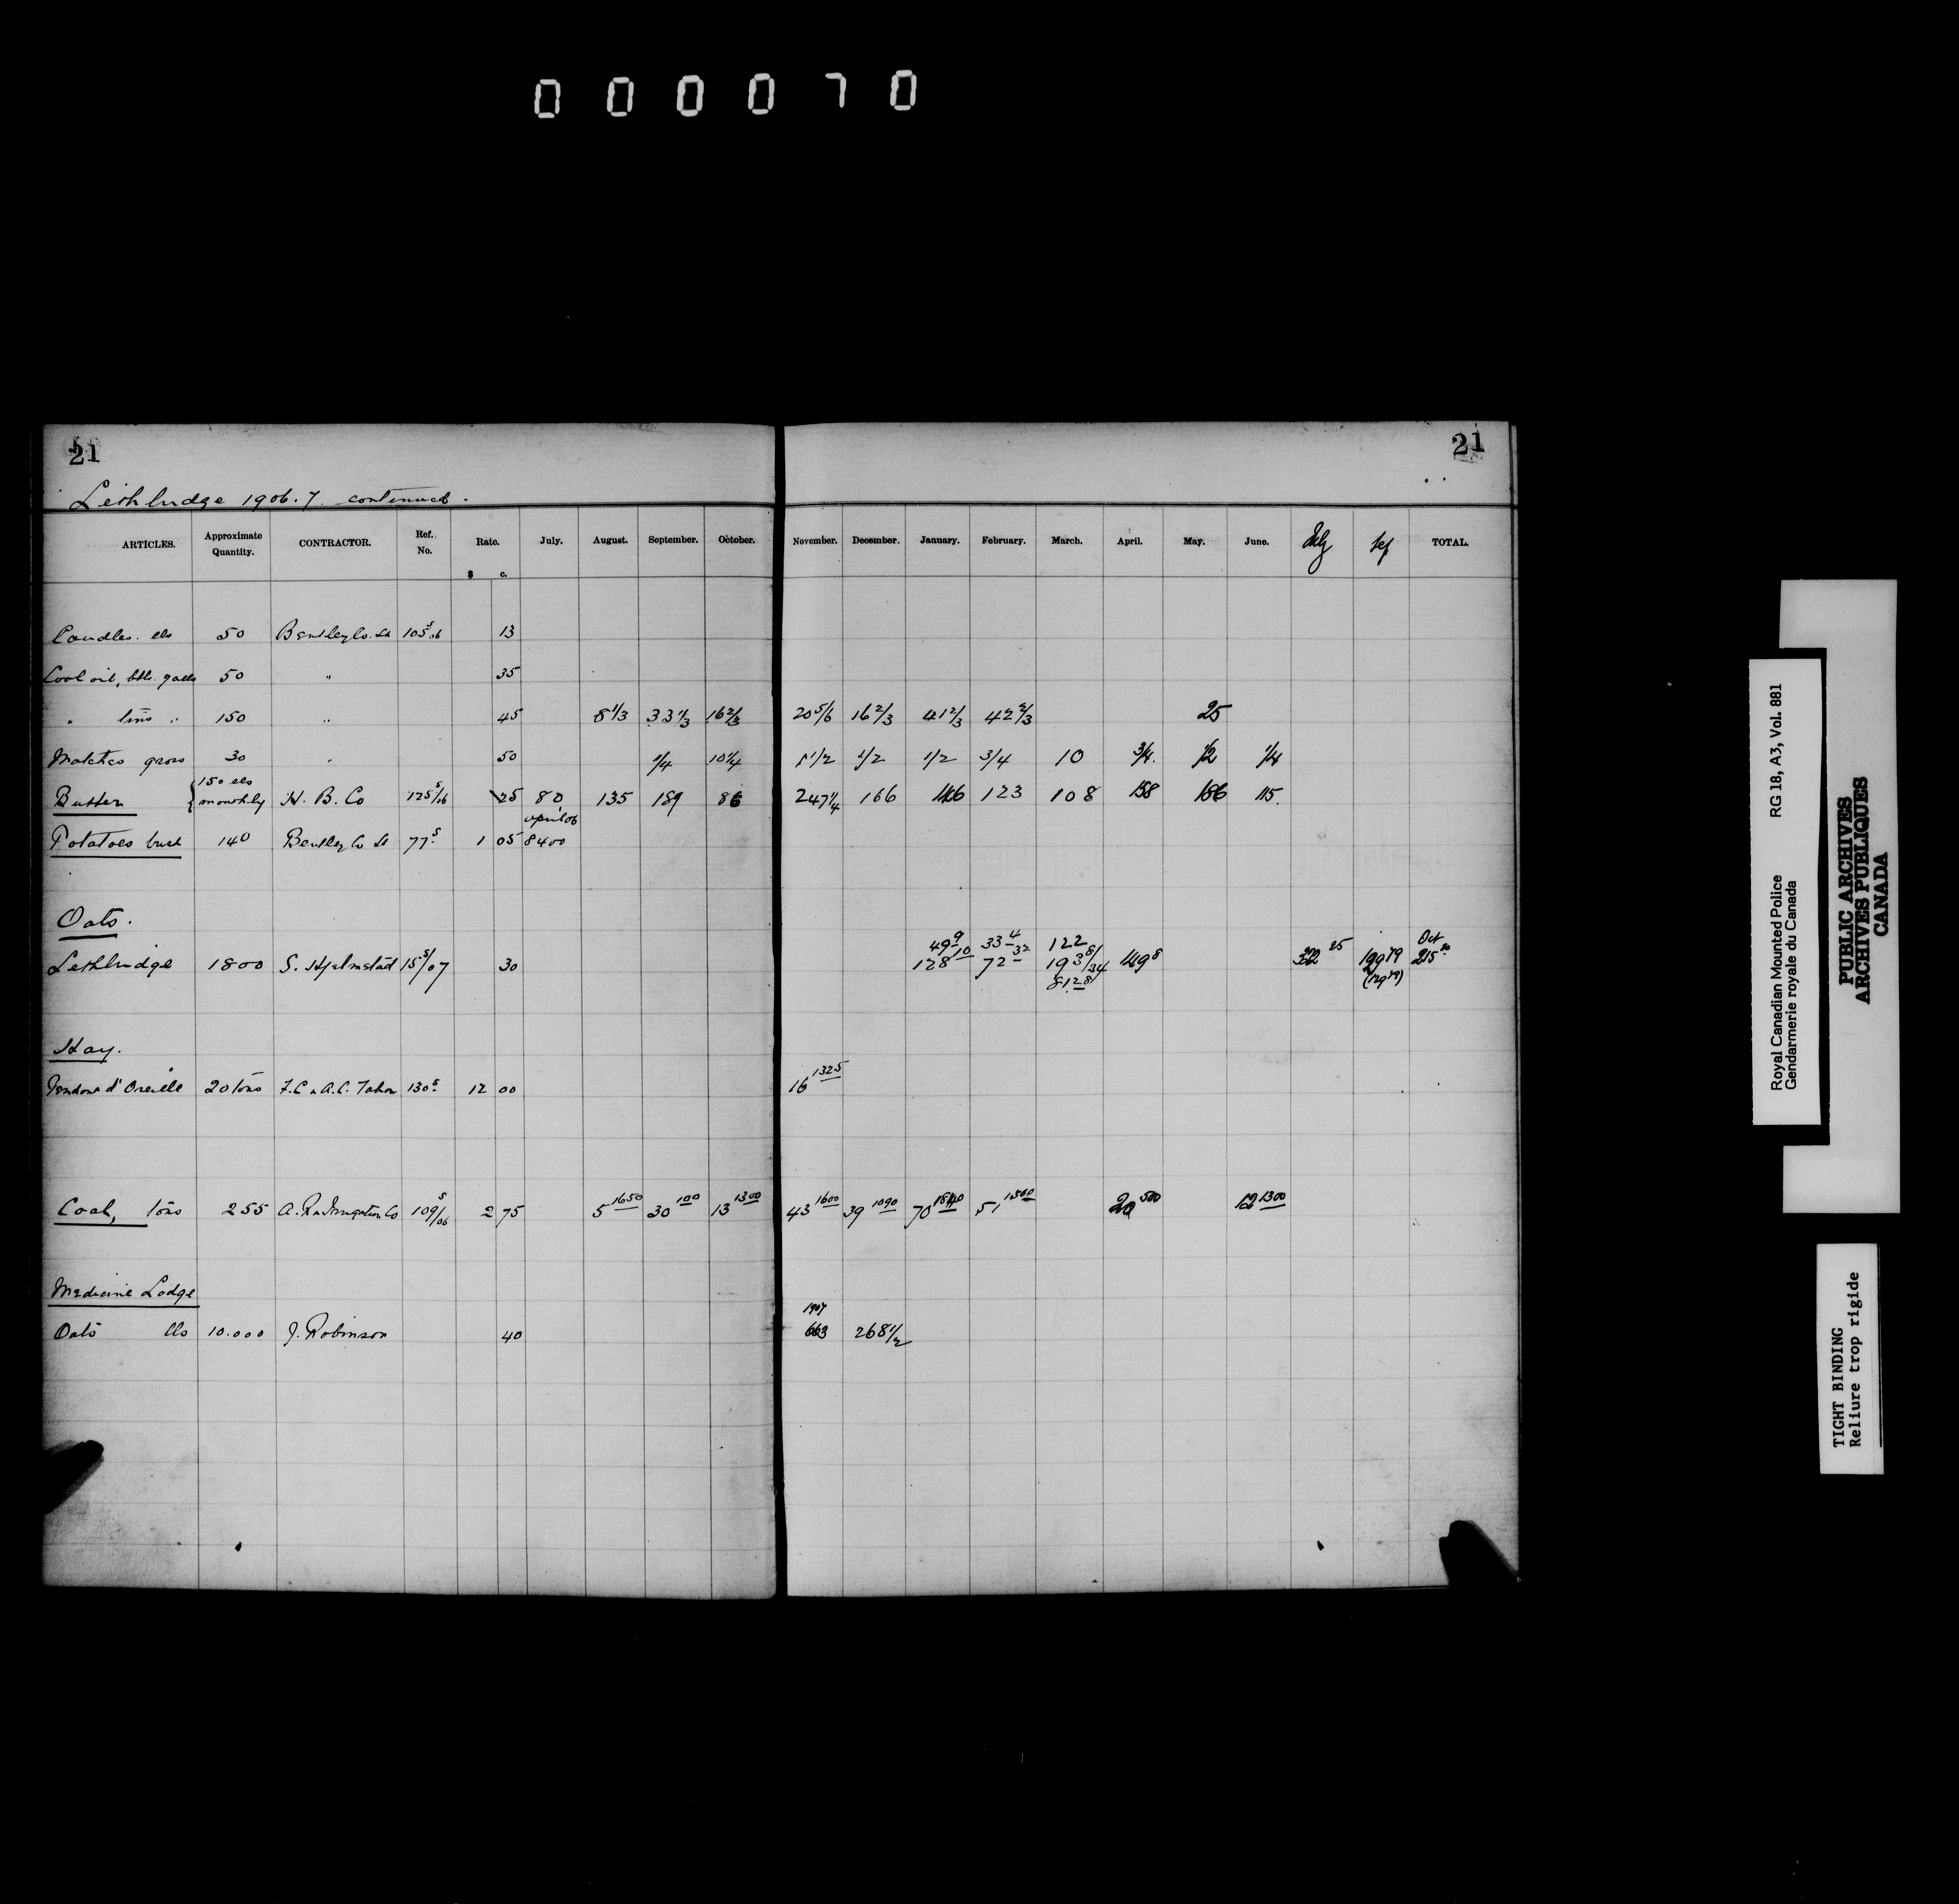 000070
21 21
Lethbridge 1906.7. continued.
ARTICLES. Approximate Quantity. CONTRACTOR. Ref. No. Rate. $ c. July. August. September. October. November. December. January. February. March. April. May. June. July Sep TOTAL.
Candles. lbs 50 Bentley Co. Ld 105 s/06 13
Coal oil, bbl. galls 50 " 35
" tins " 150 " 45 8 1/3 33 1/3 16 2/3 20 5/6 16 2/3 41 2/3 42 2/3 25
Matches gross 30 " 50 1/4 10 1/4 1/2 1/2 3/4 10 3/4 1/2 1/4
Butter {150 lbs monthly H. B. Co 125 s/06 25 80 135 189 86 247 1/4 166 146 123 108 158 186 115
april 06
Potatoes bush 140 Bentley Co Ld 77 s 1 05 8400
Oats.
49 9 33 4 122 Oct
Lethbridge 1800 S. Hjelmstad 15 s/07 30 128 10 72 32 193 8/34 149 8 322 25 199 19 215 20
81 28
Hay.
Pendore d'Oreille 20 tons F.C & A.C. Tabor 130 s 12 00 16 1325
Coal, tons 255 A. R & Irrigation Co 109 s/06 2 75 5 1650 30 100 13 1300 43 1600 39 1090 70 1840 51 1500 20 500 12 1300
Medicine Lodge
1907
Oats lbs 10.000 J. Robinson 40 663 268 1/2
Royal Canadian Mounted Police RG 18, A3, Vol. 881
Gendarmerie royale du Canada
PUBLIC ARCHIVES
ARCHIVES PUBLIQUES
CANADA
TIGHT BINDING
Reliure trop rigide